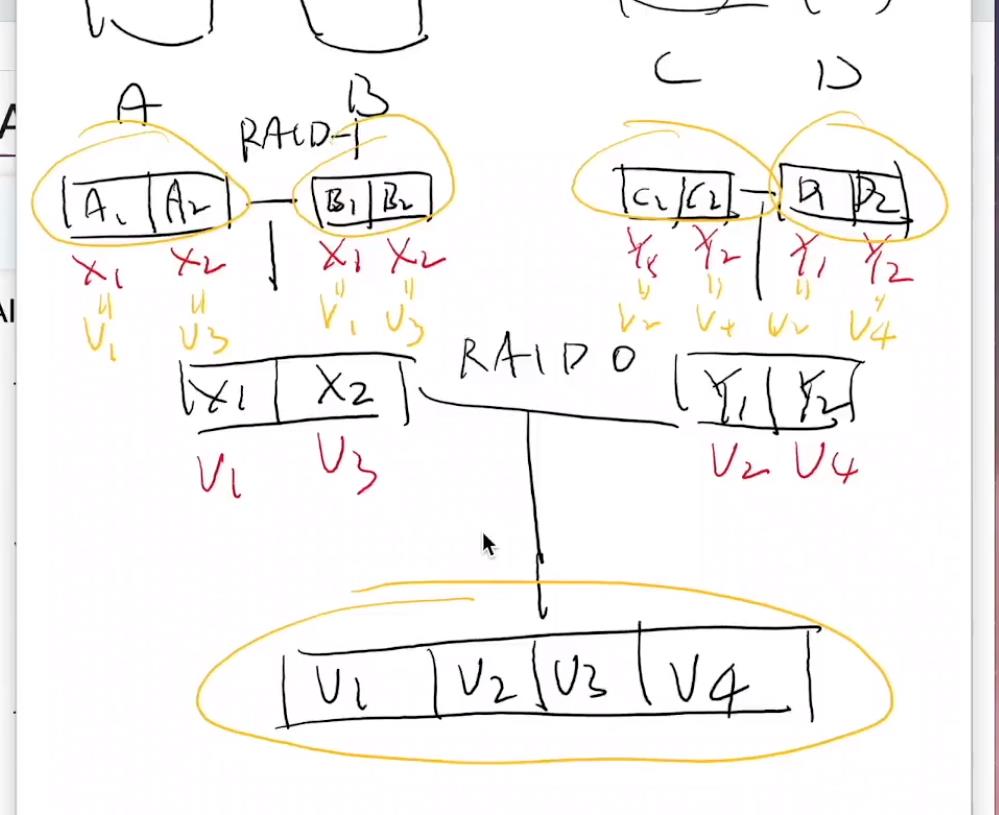 C D
A B
RAID-1
A1 A2 B1 B2 C1 C2 D1 D2
X1 X2 X1 X2 Y1 Y2 Y1 Y2
V1 V3 V1 V3 V2 V4 V2 V4
RAID 0
X1 X2 Y1 Y2
V1 V3 V2 V4
V1 V2 V3 V4